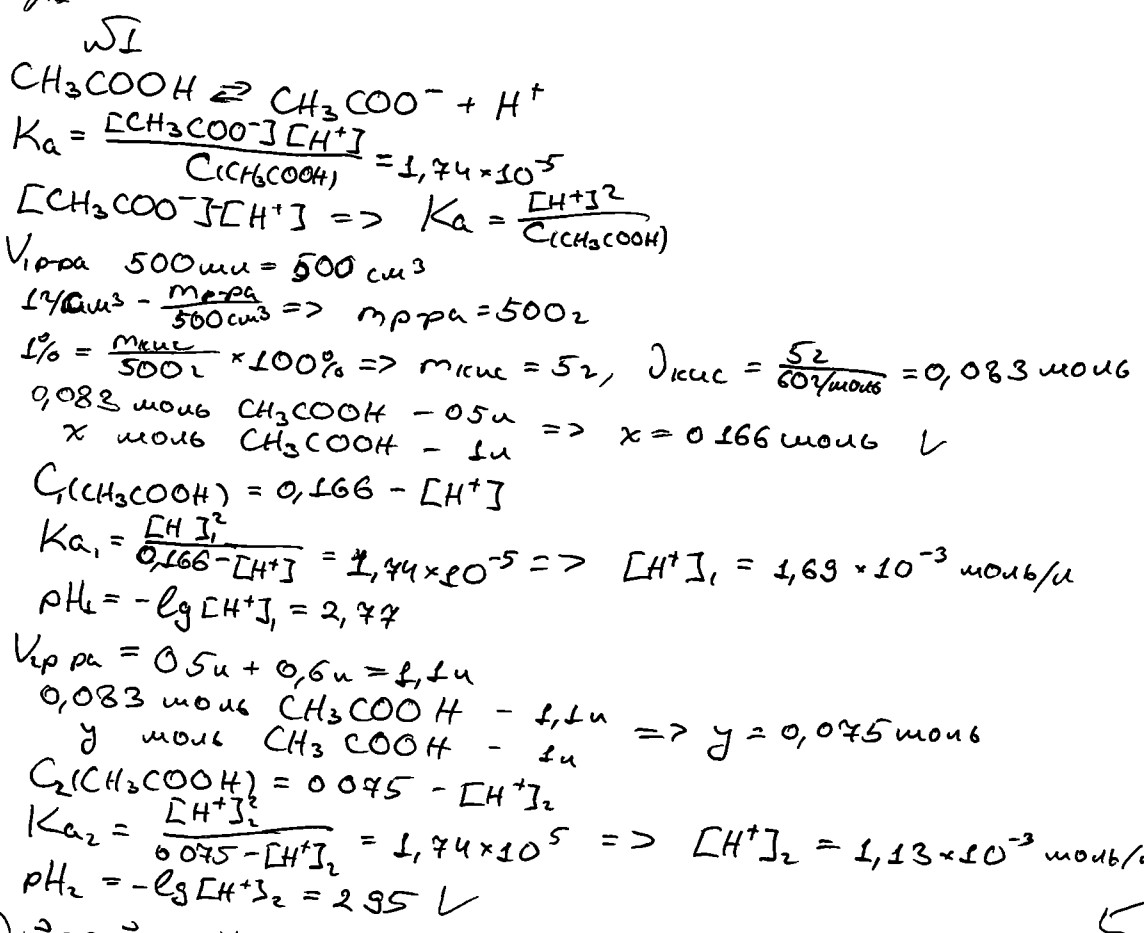 №1
CH₃COOH ⇄ CH₃COO⁻ + H⁺
Ka = [CH₃COO⁻][H⁺] / C(CH₃COOH) = 1,74×10⁻⁵
[CH₃COO⁻]=[H⁺] => Ka = [H⁺]² / C(CH₃COOH)
V₁р-ра 500мл = 500 см³
1г/см³ - mр-ра / 500см³ => mр-ра = 500г
1% = mкис / 500г ×100% => mкис = 5г, νкис = 5г / 60г/моль = 0,083 моль
0,083 моль CH₃COOH - 05л
x моль CH₃COOH - 1л => x = 0 166 моль V
C₁(CH₃COOH) = 0,166 - [H⁺]
Ka₁ = [H ]₁² / 0,166-[H⁺] = 1,74×10⁻⁵ => [H⁺]₁ = 1,69 × 10⁻³ моль/л
pH₁ = -lg[H⁺]₁ = 2,77
V₂р ра = 0 5л + 0,6л = 1,1л
0,083 моль CH₃COO H - 1,1л
y моль CH₃ COOH - 1л => y = 0,075 моль
C₂(CH₃COOH) = 0 075 - [H⁺]₂
Ka₂ = [H⁺]₂² / 0 075-[H⁺]₂ = 1,74×10⁵ => [H⁺]₂ = 1,13×10⁻³ моль/
pH₂ = -lg[H⁺]₂ = 2 95 V